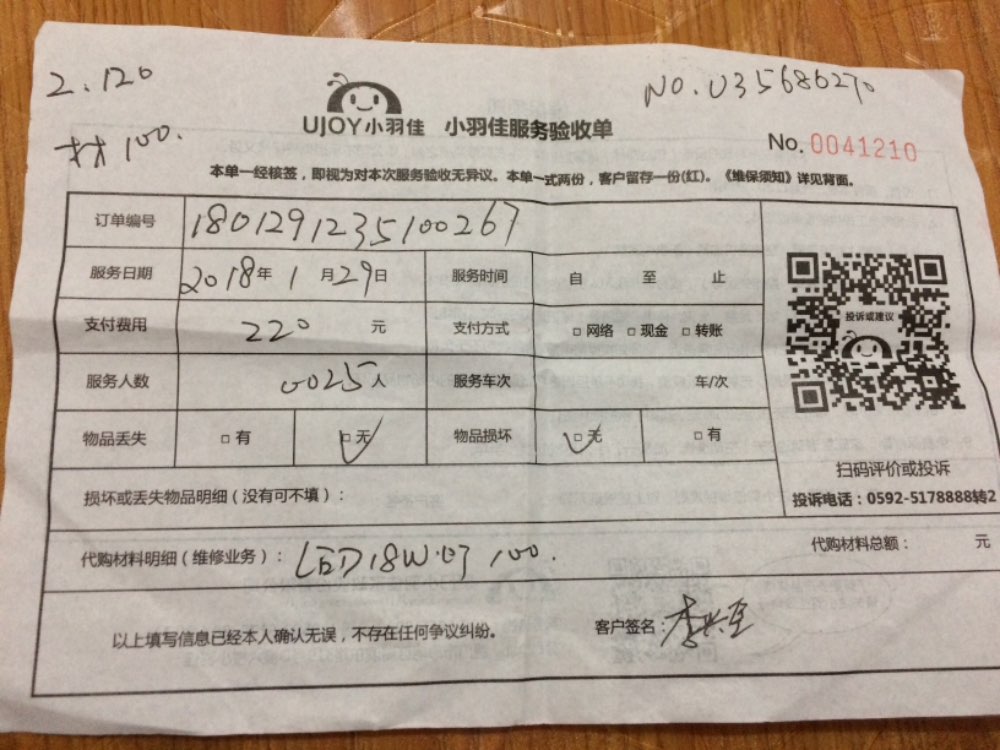 2.120
NO.U35686270
材100.
UJOY小羽佳 小羽佳服务验收单
No. 0041210
本单一经核签，即视为对本次服务验收无异议。本单一式两份，客户留存一份(红)。《维保须知》详见背面。
订单编号 1801291235100267
服务日期 2018年1月29日 服务时间 自 至 止
投诉或建议
支付费用 220 元 支付方式 □网络 □现金 □转账
服务人数 0025人 服务车次 车/次
物品丢失 □有 □无 物品损坏 □无 □有
扫码评价或投诉
损坏或丢失物品明细（没有可不填）：
投诉电话：0592-5178888转2
代购材料明细（维修业务）： LED18W 100.
代购材料总额： 元
以上填写信息已经本人确认无误，不存在任何争议纠纷。 客户签名：